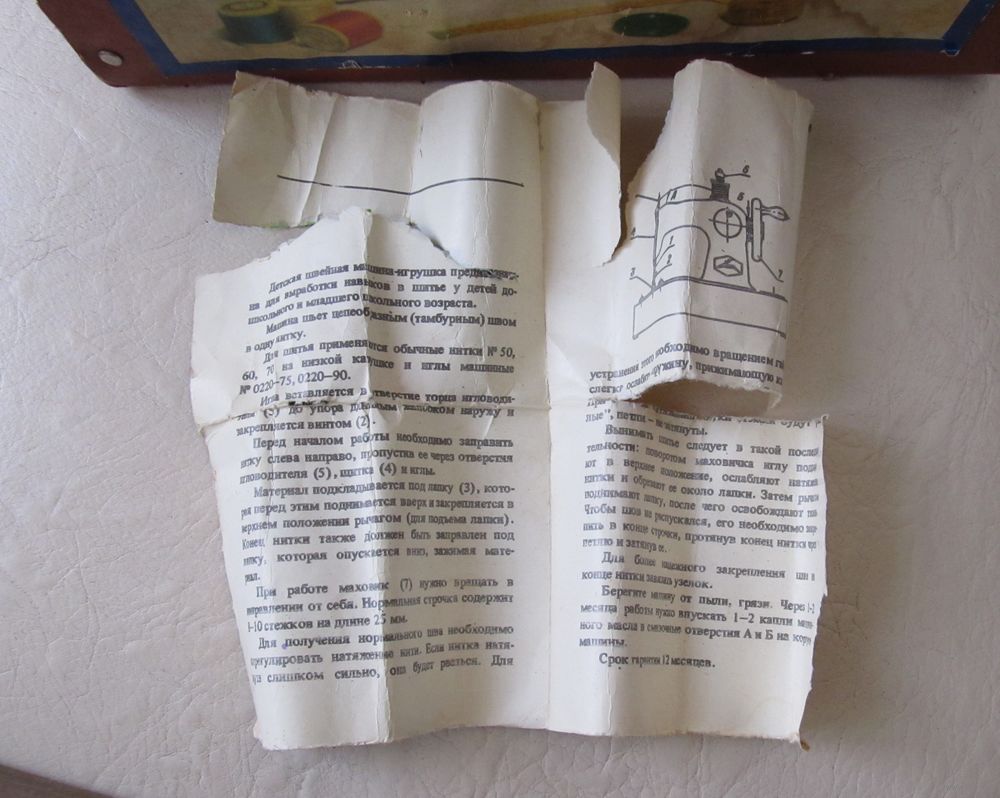 Детская швейная машина-игрушка
на для выработки навыков в шитье у детей до-
школьного и младшего школьного возраста.
Машина шьет цепеобразным (тамбурным) швом
в одну нитку.
Для шитья применяются обычные нитки № 50,
60, 70 на низкой катушке и иглы машинные
№ 0220–75, 0220–90.
Игла вставляется в отверстие торца игловоди-
(5) до упора наружу и
закрепляется винтом (2).
Перед началом работы необходимо заправить
нитку слева направо, пропустив ее через отверстия
игловодителя (5), щитка (4) и иглы.
Материал подкладывается под лапку (3), кото-
рая перед этим поднимается вверх и закрепляется в
верхнем положении рычагом (для подъема лапки).
Конец нитки также должен быть заправлен под
лапку, которая опускается вниз, зажимая мате-
риал.
При работе маховик (7) нужно вращать в
направлении от себя. Нормальная строчка содержит
10 стежков на длине 25 мм.
Для получения нормального шва необходимо
отрегулировать натяжение нити. Если нитка натя-
слишком сильно, она будет рваться. Для
6
Б
4
1
2
3
7
устранения этого необходимо вращением
слегка ослабить пружину, прижимающую
будут
петли – не затянуты.
Вынимать шитье следует в такой
поворотом маховичка иглу
в верхнее положение, ослабляют
нитки и обрезают ее около лапки. Затем
поднимают лапку, после чего освобождают
Чтобы шов не распускался, его необходимо
в конце строчки, протянув конец нитки
петлю и затянув ее.
Для более надежного закрепления
конце нитки завязать узелок.
Берегите машину от пыли, грязи. Через 1–2
месяца работы нужно впускать 1–2 капли
ного масла в смазочные отверстия А и Б на
машины.
Срок гарантии 12 месяцев.